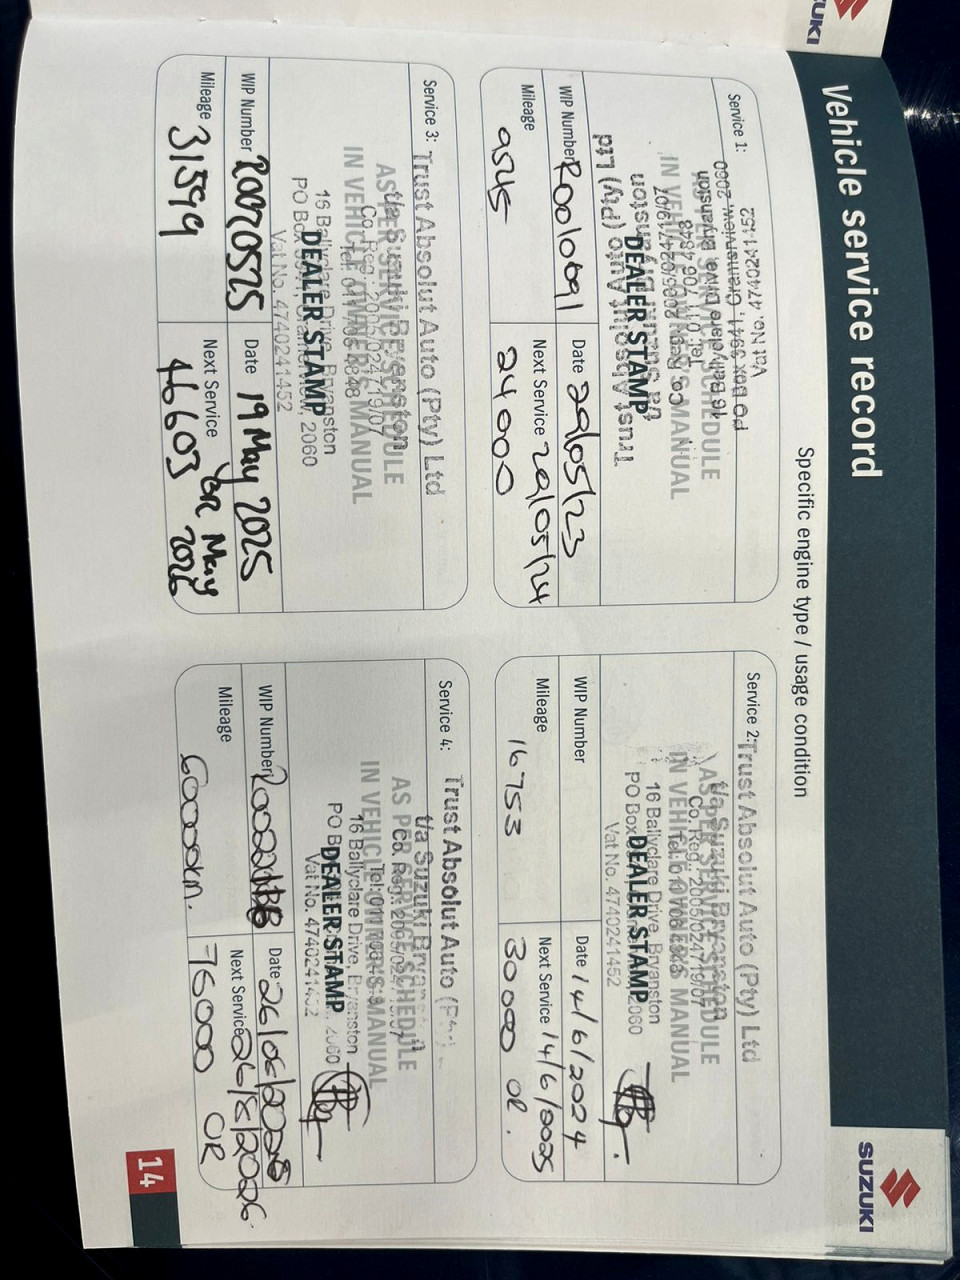 SUZUKI
Vehicle service record
SUZUKI
Specific engine type / usage condition
Service 1:
Vat No. 4740241452
PO Box 3941, Cramerview, 2060
16 Ballyclare Drive, Bryanston
Tel: 011 706 4848
Co. Reg.: 2005/024719/07
t/a Suzuki Bryanston
Trust Absolut Auto (Pty) Ltd
AS PER SERVICE SCHEDULE
IN VEHICLE OWNERS MANUAL
DEALER STAMP
WIP Number R0010091
Date 29/05/23
Mileage 9545
Next Service 29/05/24
24000
Service 2:
Trust Absolut Auto (Pty) Ltd
t/a Suzuki Bryanston
Co. Reg.: 2005/024719/07
Tel: 011 706 4848
16 Ballyclare Drive, Bryanston
PO Box 2060
Vat No. 4740241452
AS PER SERVICE SCHEDULE
IN VEHICLE OWNERS MANUAL
DEALER STAMP
WIP Number
Date 14/6/2024
Mileage 16753
Next Service 14/6/2025
30000 OR.
Service 3:
Trust Absolut Auto (Pty) Ltd
t/a Suzuki Bryanston
Co. Reg.: 2005/024719/07
Tel: 011 706 4848
16 Ballyclare Drive, Bryanston
PO Box 3941, Cramerview, 2060
Vat No. 4740241452
AS PER SERVICE SCHEDULE
IN VEHICLE OWNERS MANUAL
DEALER STAMP
WIP Number
Date 19 May 2025
Mileage 31599
Next Service May
46603 2026
Service 4:
Trust Absolut Auto
t/a Suzuki Bryanston
Co. Reg.: 2005/024719/07
Tel: 011
16 Ballyclare Drive, Bryanston
PO B 2060
Vat No. 4740241452
AS PER SERVICE SCHEDULE
IN VEHICLE OWNERS MANUAL
DEALER STAMP
WIP Number
Date
Mileage 60000km.
Next Service 26/8/2026.
76000 OR
14